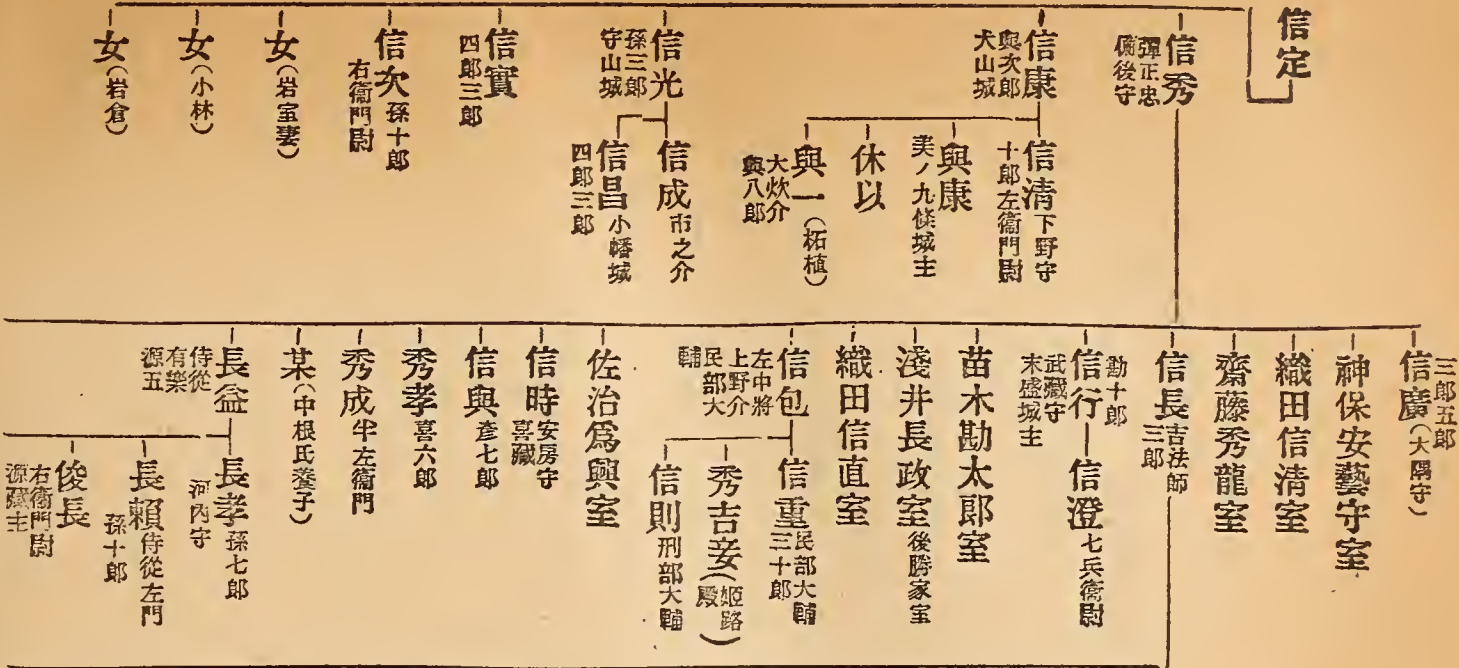 信定
信秀
彈正忠
備後守
信康
與次郎
犬山城
信清 下野守
十郎左衞門尉
與康
美ノ九條城主
休以
與一(柘植)
大炊介
與八郎
信光
孫三郎
守山城
信成 市之介
信昌 小幡城
四郎三郎
信實
四郎三郎
信次 孫十郎
右衞門尉
女(岩室妻)
女(小林)
女(岩倉)
信廣(大隅守)
三郎五郎
神保安藝守室
織田信清室
齋藤秀龍室
信長 吉法師
三郎
信行
勘十郎
武藏守
末盛城主
信澄 七兵衞尉
苗木勘太郎室
淺井長政室 後勝家室
織田信直室
信包
左中將
上野介
民部大輔
信重 民部大輔
三十郎
秀吉妾(姬路殿)
信則 刑部大輔
佐治爲興室
信時 安房守
喜藏
信與 彥七郎
秀孝 喜六郎
秀成 半左衞門
某(中根氏養子)
長益
侍從
有樂
源五
長孝 孫七郎
河內守
長賴 侍從左門
孫十郎
俊長
右衞門尉
源藏主